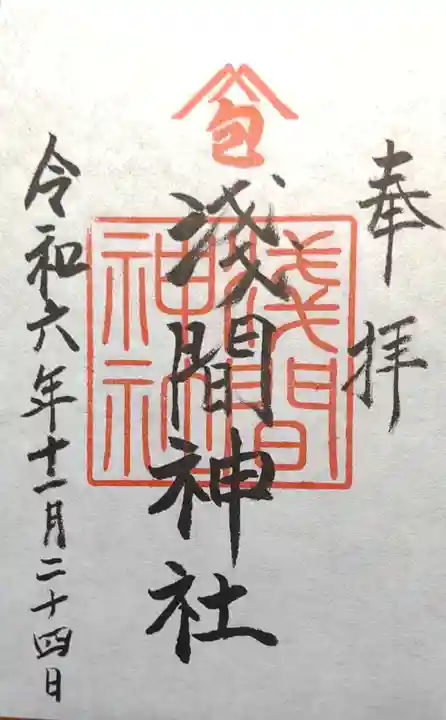 奉拝
淺間神社
淺間神社
令和六年十一月二十四日